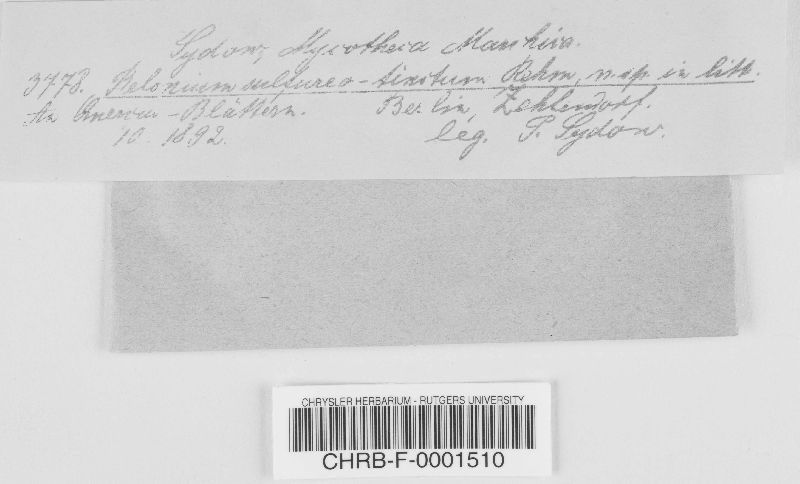 Sydow, Mycotheca Marchica.
3473. Belonium sulfureo-tinctum Rehm, n. sp. in litt.
An Quercus-Blättern. Berlin, Zehlendorf.
10. 1892. leg. P. Sydow.
CHRYSLER HERBARIUM - RUTGERS UNIVERSITY
CHRB-F-0001510